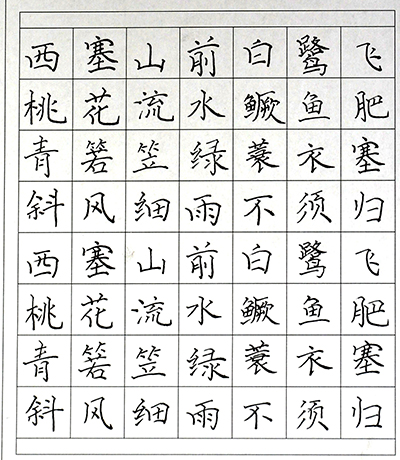 西塞山前白鹭飞
桃花流水鳜鱼肥
青箬笠绿蓑衣塞
斜风细雨不须归
西塞山前白鹭飞
桃花流水鳜鱼肥
青箬笠绿蓑衣塞
斜风细雨不须归